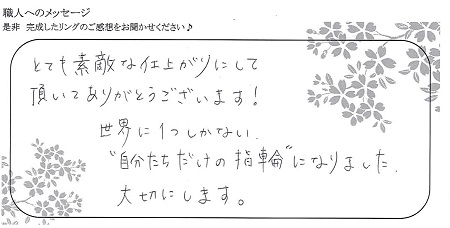 職人へのメッセージ
是非 完成したリングのご感想をお聞かせください♪
とても素敵な仕上がりにして
頂いてありがとうございます！
世界に1つしかない、
"自分たちだけの指輪"になりました。
大切にします。